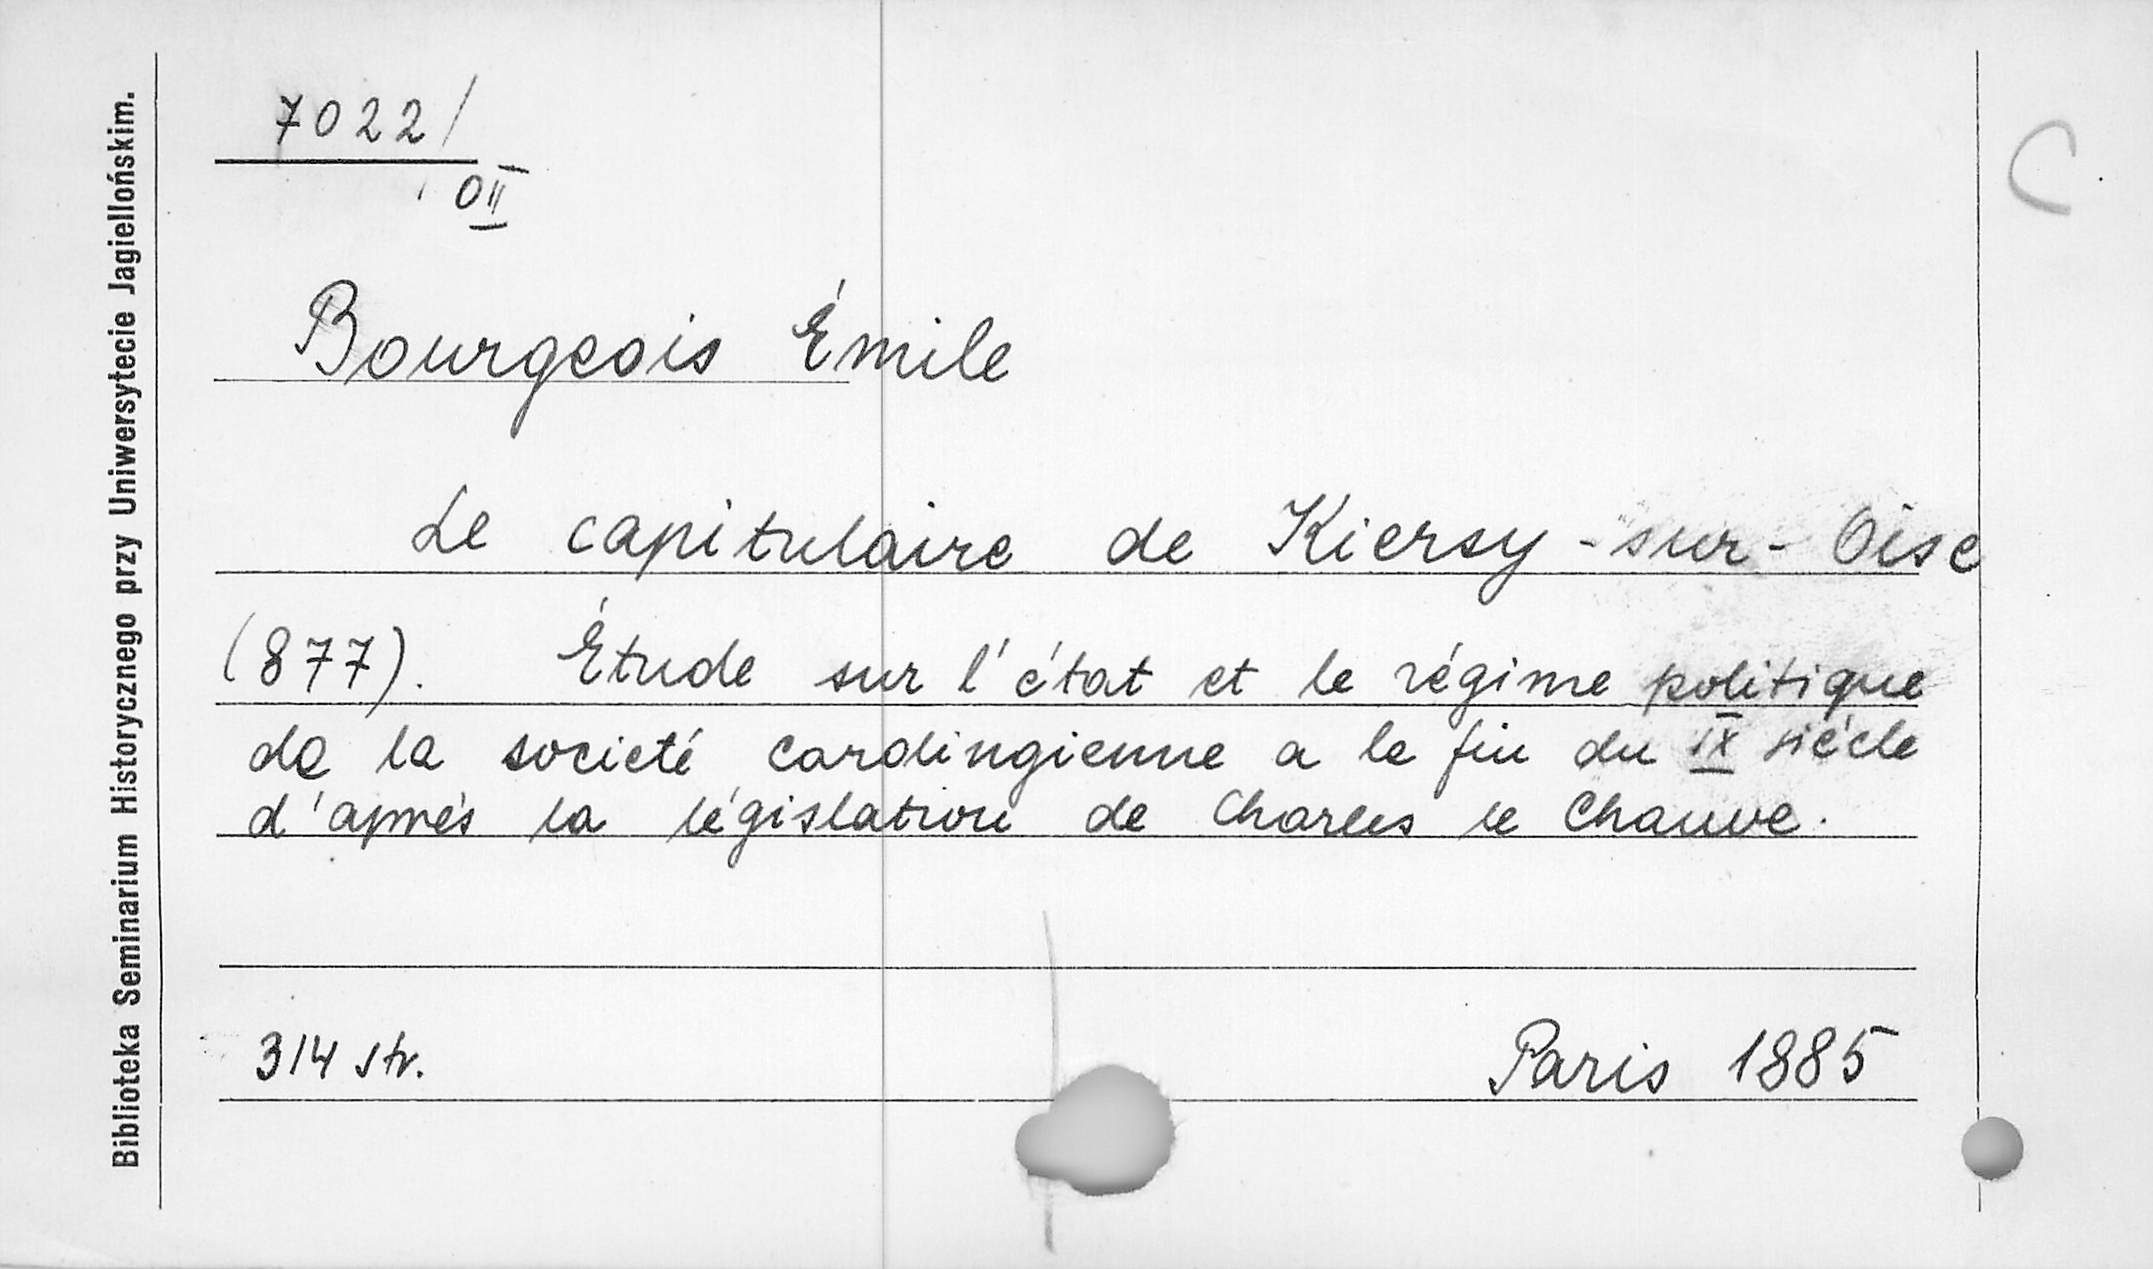 Biblioteka Seminarium Historycznego przy Uniwersytecie Jagiellońskim.
7022/
OII
C
Bourgeois Émile
Le capitulaire de Kiersy-sur-Oise
(877). Étude sur l'état et le régime politique
de la societé carolingienne a le fin du IX siécle
d'aprés la législation de Charles le Chauve.
314 str.
Paris 1885